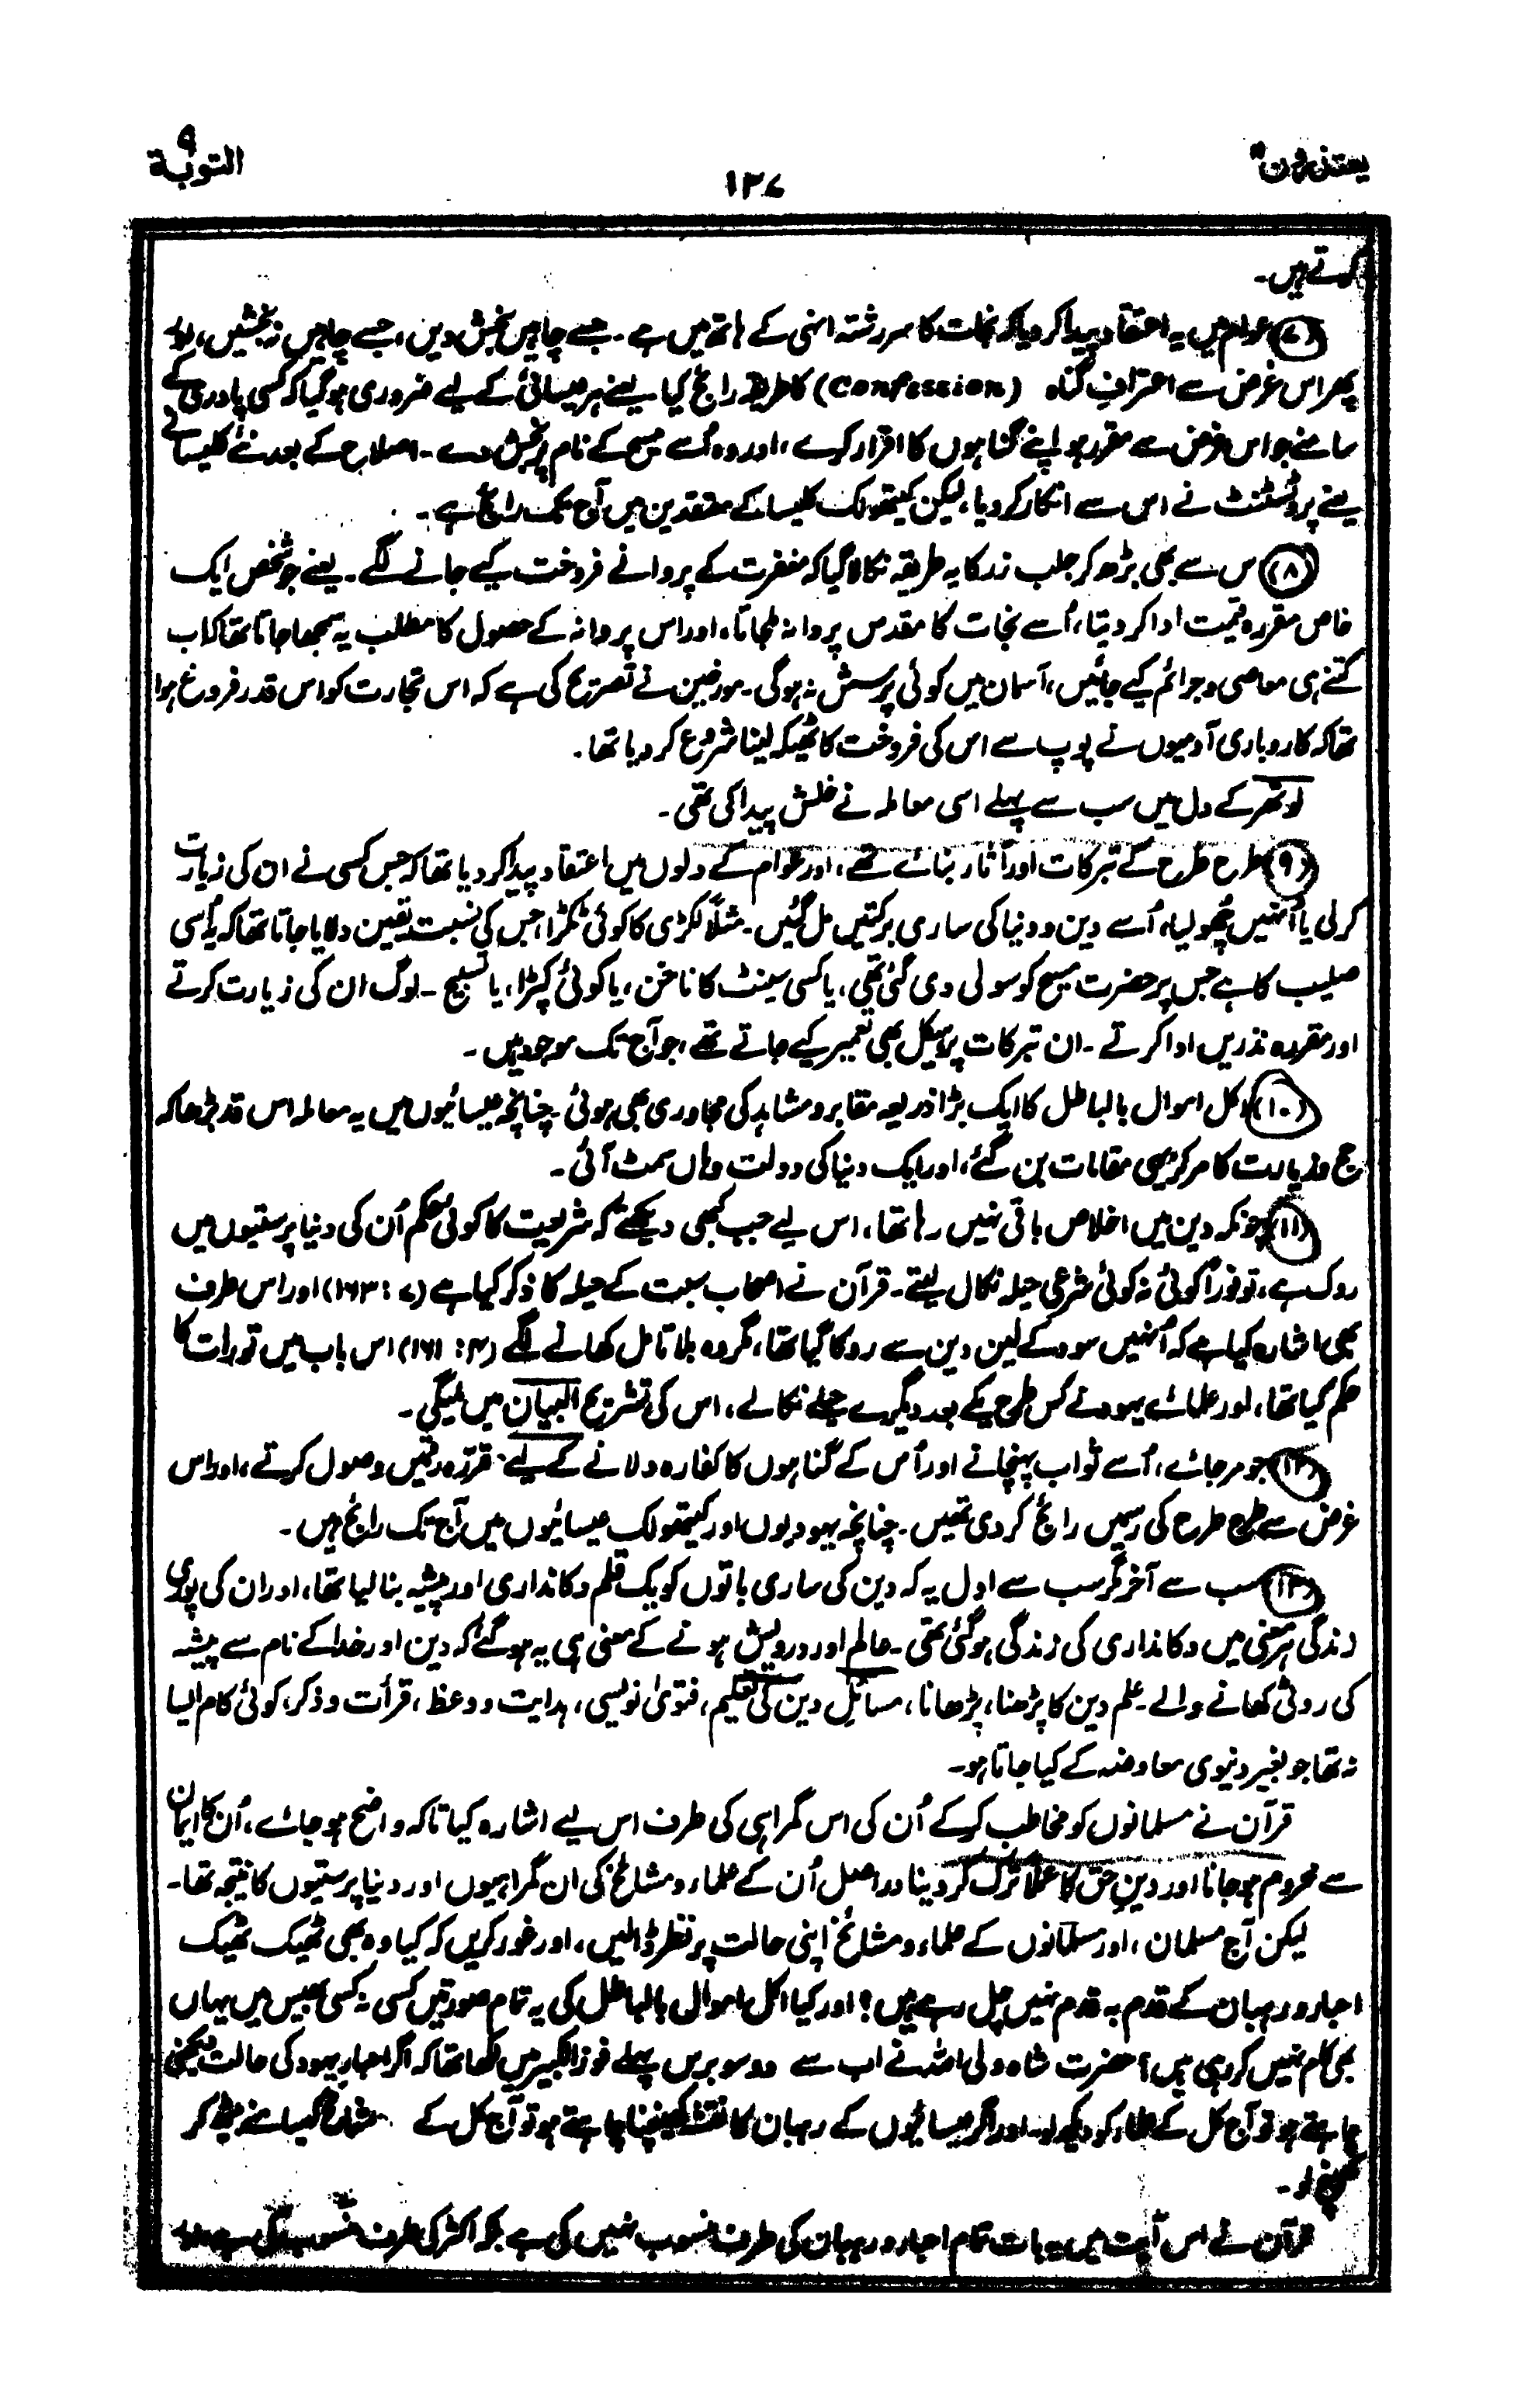 یعتذرون ۱۱
۱۲۷
التوبة ۹
کرتے ہیں۔
(۷) عوام میں یہ اعتقاد پیدا کر دیا کہ نجات کا سر رشتہ انہی کے ہاتھ میں ہے۔ جسے چاہیں بخش دیں، جسے چاہیں نہ بخشیں، اور
پھر اس غرض سے اعترافِ گناہ (Confession) کا طریقہ رائج کیا۔ یعنے ہر عیسائی کے لیے ضروری ہو گیا کہ کسی پادری کے
سامنے جو اس غرض سے مقرر ہو اپنے گناہوں کا اقرار کرے، اور وہ اُسے مسیح کے نام پر بخش دے۔ اصلاح کے بعد نئے کلیسا نے
یعنے پروٹسٹنٹ نے اس سے انکار کر دیا، لیکن کیتھولک کلیسا کے معتقدین میں آج تک رائج ہے۔
(۸) اس سے بھی بڑھ کر جلب زر کا یہ طریقہ نکالا گیا کہ مغفرت کے پروانے فروخت کیے جانے لگے۔ یعنے جو شخص ایک
خاص مقررہ قیمت ادا کر دیتا، اُسے نجات کا مقدس پروانہ مل جاتا، اور اس پروانہ کے حصول کا مطلب یہ سمجھا جاتا تھا کہ اب
کتنے ہی معاصی و جرائم کیے جائیں، آسمان میں کوئی پرسش نہ ہوگی۔ مورخین نے تصریح کی ہے کہ اس تجارت کو اس قدر فروغ ہوا
تھا کہ کاروباری آدمیوں نے پوپ سے اس کی فروخت کا ٹھیکہ لینا شروع کر دیا تھا۔
لوتھر کے دل میں سب سے پہلے اسی معاملہ نے خلش پیدا کی تھی۔
(۹) طرح طرح کے تبرکات اور آثار بنائے تھے، اور عوام کے دلوں میں اعتقاد پیدا کر دیا تھا کہ جس کسی نے ان کی زیارت
کر لی یا اُنہیں چھو لیا، اُسے دین و دنیا کی ساری برکتیں مل گئیں۔ مثلاً لکڑی کا کوئی ٹکڑا، جس کی نسبت یقین دلایا جاتا تھا کہ یہ اُسی
صلیب کا ہے جس پر حضرت مسیح کو سولی دی گئی تھی، یا کسی سینٹ کا ناخن، یا کوئی کپڑا، یا تسبیح۔ لوگ ان کی زیارت کرتے
اور مقررہ نذریں ادا کرتے۔ ان تبرکات پر ہیکل بھی تعمیر کیے جاتے تھے، جو آج تک موجود ہیں۔
(۱۰) اکل اموال بالباطل کا ایک بڑا ذریعہ مقابر و مشاہد کی مجاوری بھی ہوئی۔ چنانچہ عیسائیوں میں یہ معاملہ اس قدر بڑھا کہ
حج و زیارت کا مرکز یہی مقامات بن گئے، اور ایک دنیا کی دولت وہاں سمٹ آئی۔
(۱۱) چونکہ دین میں اخلاص باقی نہیں رہا تھا، اس لیے جب کبھی دیکھتے کہ شریعت کا کوئی حکم اُن کی دنیا پرستیوں میں
روک ہے، تو فوراً کوئی نہ کوئی شرعی حیلہ نکال لیتے۔ قرآن نے اصحاب سبت کے حیلہ کا ذکر کیا ہے (۷: ۱۶۳) اور اس طرف
بھی اشارہ کیا ہے کہ اُنہیں سود کے لین دین سے روکا گیا تھا، مگر وہ بلا تامل کھانے لگے (۴: ۱۶۱) اس باب میں تورات کا
حکم کیا تھا، اور علمائے یہود نے کس طرح یکے بعد دیگرے حیلے نکالے، اس کی تشریح البیان میں ملیگی۔
(۱۲) جو مر جائے، اُسے ثواب پہنچانے اور اُس کے گناہوں کا کفارہ دلانے کے لیے مقررہ رقمیں وصول کرتے، اور اس
غرض سے طرح طرح کی رسمیں رائج کر دی تھیں۔ چنانچہ یہودیوں اور کیتھولک عیسائیوں میں آج تک رائج ہیں۔
(۱۳) سب سے آخر مگر سب سے اول یہ کہ دین کی ساری باتوں کو یک قلم دکانداری اور پیشہ بنا لیا تھا، اور ان کی پوری
زندگی ہر معنی میں دکانداری کی زندگی ہو گئی تھی۔ عالم اور درویش ہونے کے معنی ہی یہ ہو گئے کہ دین اور خدا کے نام سے پیشہ
کی روٹی کھانے والے۔ علم دین کا پڑھنا، پڑھانا، مسائل دین کی تعلیم، فتویٰ نویسی، ہدایت و وعظ، قرأت و ذکر، کوئی کام ایسا
نہ تھا جو بغیر دنیوی معاوضہ کے کیا جاتا ہو۔
قرآن نے مسلمانوں کو مخاطب کر کے اُن کی اس گمراہی کی طرف اس لیے اشارہ کیا تاکہ واضح ہو جائے، اُن کا ایمان
سے محروم ہو جانا اور دینِ حق کا عملاً ترک کر دینا دراصل اُن کے علماء و مشائخ کی ان گمراہیوں اور دنیا پرستیوں کا نتیجہ تھا۔
لیکن آج مسلمان، اور مسلمانوں کے علماء و مشائخ اپنی حالت پر نظر ڈالیں، اور غور کریں کہ کیا وہ بھی ٹھیک ٹھیک
احبار و رہبان کے قدم بہ قدم نہیں چل رہے ہیں؟ اور کیا اکل اموال بالباطل کی یہ تمام صورتیں کسی نہ کسی بھیس میں یہاں
بھی کام نہیں کر رہی ہیں؟ حضرت شاہ ولی اللہ نے اب سے دو سو برس پہلے فوز الکبیر میں لکھا تھا کہ اگر احبار یہود کی حالت دیکھنی
چاہتے ہو تو آج کل کے علماء کو دیکھ لو۔ اور اگر عیسائیوں کے رہبان کا نقشہ کھینچنا چاہتے ہو تو آج کل کے مشائخ کے سامنے بیٹھ کر
کھینچ لو۔
قرآن نے اس آیت میں یہ بات تمام احبار و رہبان کی طرف منسوب نہیں کی ہے بلکہ اکثر کی طرف منسوب کی ہے اور